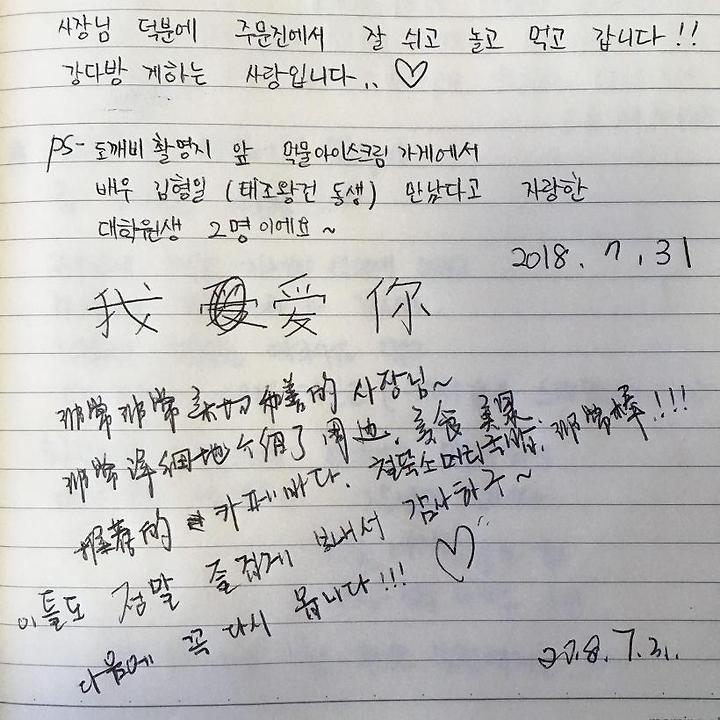 사장님 덕분에 주문진에서 잘 쉬고 놀고 먹고 갑니다!!
강다방 게하는 사랑입니다.. ♡
PS- 도깨비 촬영지 앞 먹물아이스크림 가게에서
배우 김형일 (태조왕건 동생) 만났다고 자랑한
대학원생 2명이에요~
2018. 7. 31
我 爱 你
非常非常亲切和善的 사장님~
非常详细地介绍了周边, 美食 美景, 非常棒!!!
推荐的 카페바다. 철뚝소머리국밥,
이틀도 정말 즐겁게 보내서 감사하구~ ♡
다음에 꼭 다시 봅니다!!!
2018. 7. 31.